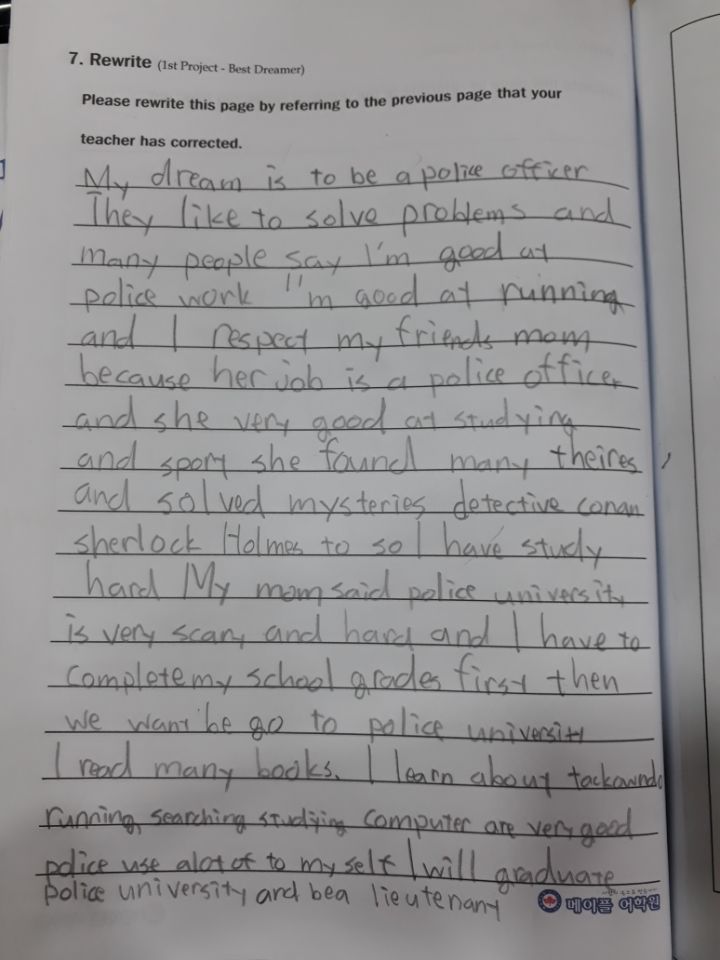 7. Rewrite (1st Project - Best Dreamer)
Please rewrite this page by referring to the previous page that your
teacher has corrected.
My dream is to be a police officer
They like to solve problems and
many people say I'm good at
police work I'm good at running
and I respect my friends mom
because her job is a police officer
and she very good at studying
and sport she found many theires,
and solved mysteries detective conan
sherlock Holmes to so I have study
hard My mom said police university
is very scary and hard and I have to
complete my school grades first then
we want be go to police university
I read many books. I learn about tackowndo
running, searching studying computer are very good
police use alot of to my self I will graduate
police university and be a lieutenany
메이플 어학원